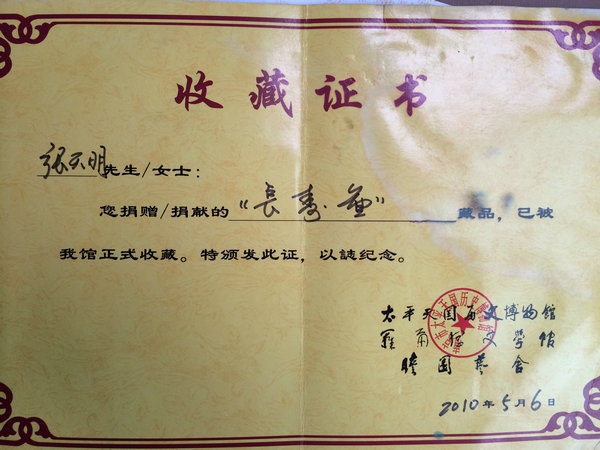 收藏证书
张天明先生/女士:
您捐赠/捐献的“長寿”藏品，已被
我馆正式收藏。特颁发此证，以誌纪念。
太平天国历史博物馆
羅爾綱史學館
瞻園藝舍
2010年5月6日